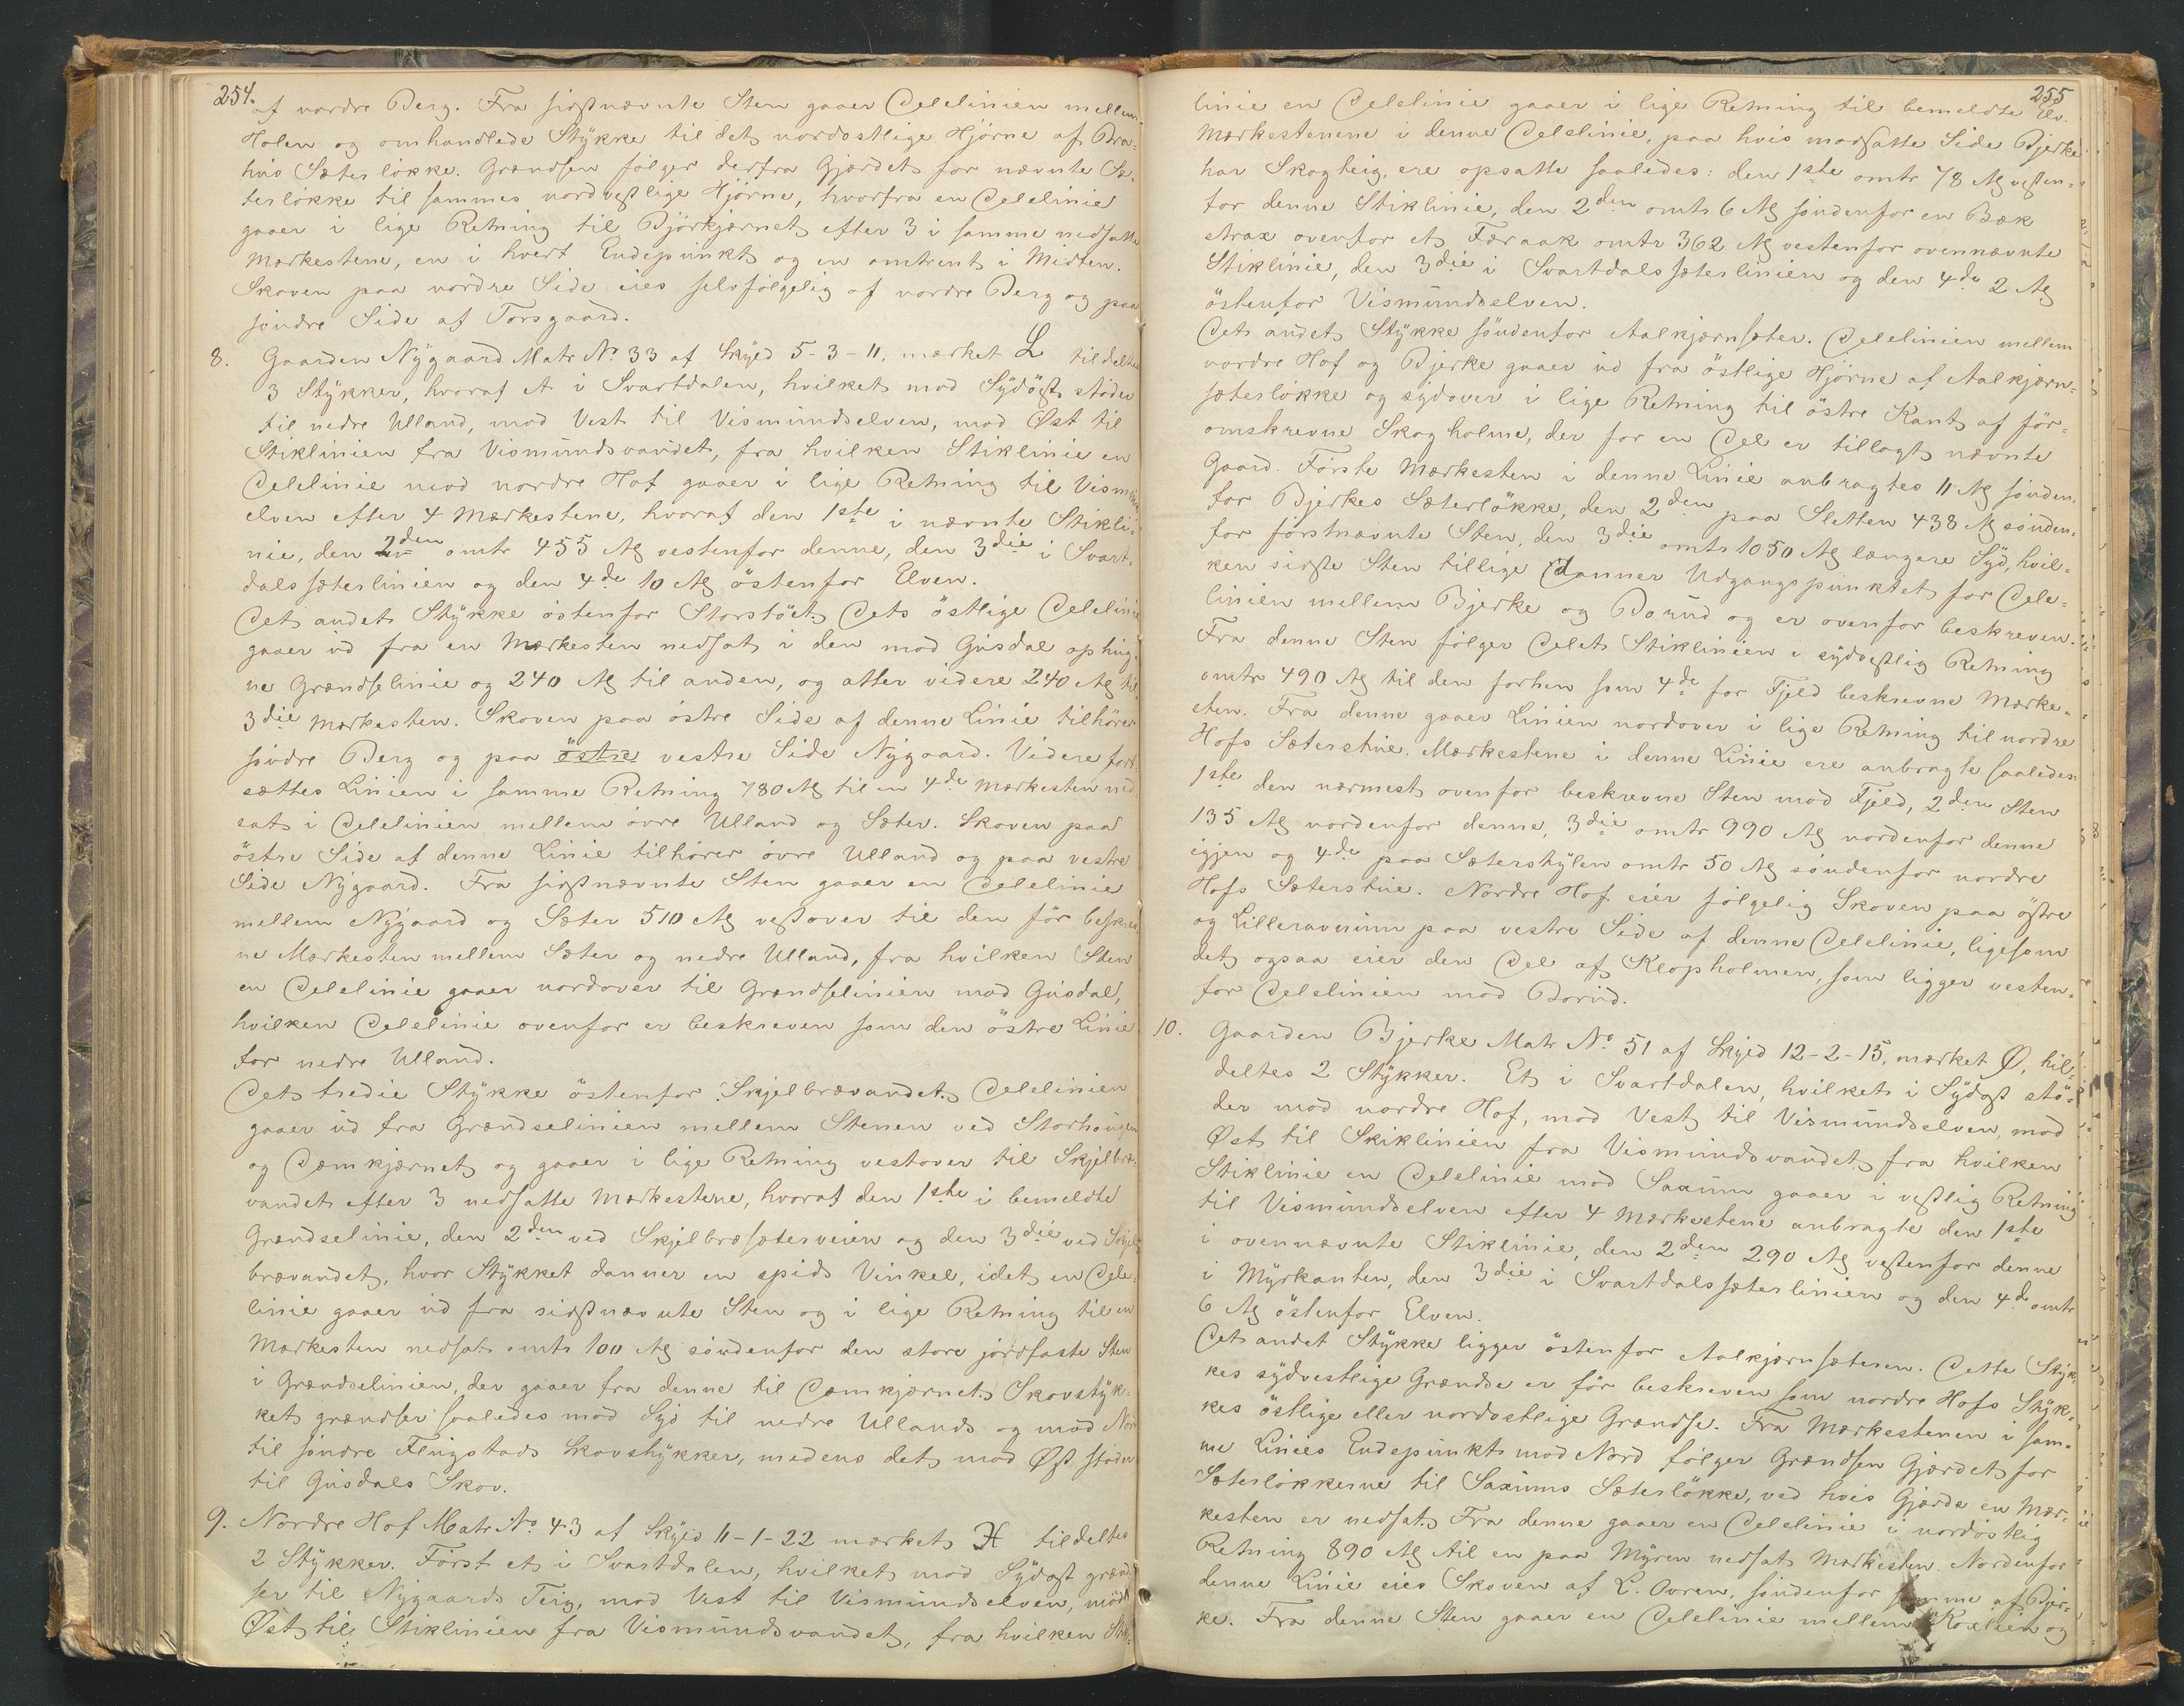 254.
af nordre Berg. Fra sidstnævnte Sten gaaer Delelinien mellem
Holen og omhandlede Stykke til det nordostlige Hjörne af Bra-
hvis Sæterlökke. Grændsen fölger derfra Gjærdet for nævnte Sæ-
terlökke til sammes nordvestlige Hjörne, hvorfra en Delelinie
gaaer i lige Retning til Björkjærnet efter 3 i samme nedsatte
Mærkestene, en i hvert Endepunkt og en omtrent i Midten.
Skoven paa nordre Side eies selvfölgelig af nordre Berg og paa
söndre Side af Torsgaard.
8. Gaarden Nÿgaard Matr No. 33 af Skyld 5-3-11, mærket L tildeltes
3 Stÿkker, hvoraf et i Svartdalen, hvilket mod Sÿdöst stöder
til nedre Ulland, mod Vest til Vismundselven, mod Öst til
Stiklinien fra Vismundsvandet, fra hvilken Stiklinie en
Delelinie mod nordre Hof gaaer i lige Retning til Vismunds-
elven efter 4 Mærkestene, hvoraf den 1ste i nævnte Stikli-
nie, den 2den omtr 455 Al vestenfor denne, den 3die i Svart-
dalssæterlinien og den 4de 10 Al östenfor Elven.
Det andet Stÿkke östenfor Storstöet. Dets östlige Delelinie
gaaer ud fra en Mærkesten nedsat i den mod Gusdal ophug-
ne Grændselinie og 240 Al til anden, og atter videre 240 Al til
3die Mærkesten. Skoven paa östre Side af denne Linie tilhörer
söndre Berg og paa östre vestre Side Nÿgaard. Videre fort-
sættes Linien i samme Retning 780 Al til en 4de Mærkesten ned-
sat i Delelinien mellem övre Ulland og Sæter. Skoven paa
östre Side af denne Linie tilhörer övre Ulland og paa vestre
Side Nÿgaard. Fra sidstnævnte Sten gaaer en Delelinie
mellem Nÿgaard og Sæter 510 Al vestover til den för beskrev-
ne Mærkesten mellem Sæter og nedre Ulland, fra hvilken Sten
en Delelinie gaaer nordover til Grændselinien mod Gusdal,
hvilken Delelinie ovenfor er beskreven som den östre Linie
for nedre Ulland.
Det tredie Stÿkke östenfor Skjelbrævandet. Delelinien
gaaer ud fra Grændselinien mellem Stenen ved Storhougen
og Damkjærnet og gaaer i lige Retning vestover til Skjelbræ-
vandet efter 3 nedsatte Mærkestene, hvoraf den 1ste i bemeldte
Grændselinie, den 2den ved Skjelbræsæterveien og den 3die ved Skjel-
brævandet, hvor Stÿkket danner en spids Vinkel, idet en Dele-
linie gaaer ud fra sidstnævnte Sten og i lige Retning til en
Mærkesten nedsat omtr 100 Al söndenfor den store jordfaste Sten
i Grændselinien, der gaaer fra denne til Damkjærnet. Skovstÿk-
ket grændser saaledes mod Sÿd til nedre Ullands og mod Nord
til söndre Flugstads Skovstÿkker, medens det mod Öst stöder
til Gusdals Skov.
9. Nordre Hof Matr No 43 af Skÿld 11-1-22 mærket H tildeltes
2 Stÿkker. Först et i Svartdalen, hvilket mod Sÿdost grænd-
ser til Nÿgaards Teig, mod Vest til Vismundselven, mod
Öst til Stiklinien fra Vismundsvandet, fra hvilken Stik-
255
linie en Delelinie gaaer i lige Retning til bemeldte Elv.
Mærkestenene i denne Delelinie, paa hvis modsatte Side Bjerke
har Skogteig, ere opsatte saaledes: den 1ste omtr 78 Al vesten-
for denne Stiklinie, den 2den omtr 6 Al söndenfor en Bæk
strax ovenfor et Færaak omtr 362 Al vestenfor ovennævnte
Stiklinie, den 3die i Svartdalssæterlinien og den 4de 2 Al
östenfor Vismundselven.
Det andet Stÿkke söndenfor Aalkjærnsæter. Delelinien mellem
nordre Hof og Bjerke gaaer ud fra östlige Hjörne af Aalkjærn-
sæterlökke og sÿdover i lige Retning til östre Kant af för-
omskrevne Skogholme, der for en Del er tillagt nævnte
Gaard. Förste Mærkesten i denne Linie anbragtes 11 Al sönden-
for Bjerkes Sæterlökke, den 2den paa Sletten 438 Al sönden-
for förstnævnte Sten, den 3die omtr 1050 Al længere Sÿd, hvil-
ken sidste Sten tillige danner Udgangspunktet for Dele-
linien mellem Bjerke og Borud og er ovenfor beskreven.
Fra denne Sten fölger Delet Stiklinien i sÿdvestlig Retning
omtr 490 Al til den forhen som 4de for Fjeld beskrevne Mærke-
sten. Fra denne gaaer Linien nordover i lige Retning til nordre
Hofs Sæterstue. Mærkestene i denne Linie ere anbragte saaledes:
1ste den nærmest ovenfor beskrevne Sten mod Fjeld, 2den Sten
135 Al nordenfor denne, 3die omtr 990 Al nordenfor denne
igjen og 4de paa Sæterhÿlen omtr 50 Al söndenfor nordre
Hofs Sæterstue. Nordre Hof eier fölgelig Skoven paa östre
og Lilleravnum paa vestre Side af denne Delelinie, ligesom
det ogsaa eier den Del af Klopholmen, som ligger vesten-
for Delelinien mod Borud.
10. Gaarden Bjerke Matr No. 51 af Skÿld 12-2-15, mærket Ø, til-
deltes 2 Stÿkker. Et i Svartdalen, hvilket i Sÿdost stö-
der mod nordre Hof, mod Vest til Vismundselven, mod
Öst til Skiklinien fra Vismundsvandet, fra hvilken
Stiklinie en Delelinie mod Saxum gaaer i vestlig Retning
til Vismundselven efter 4 Mærkestene anbragte den 1ste
i ovennævnte Stiklinie, den 2den 290 Al vestenfor denne
i Mÿrkanten, den 3die i Svartdalssæterlinien og den 4de omtr
6 Al östenfor Elven.
Det andet Stÿkke ligger östenfor Aalkjærnsæteren. Dette Stÿk-
kes sÿdvestlige Grændse er för beskreven som nordre Hofs Stÿk-
kes östlige eller nordostlige Grændse. Fra Mærkestenen i sam-
me Linies Endepunkt mod Nord fölger Grændsen Gjærdet for
Sæterlökkerne til Saxums Sæterlökke, ved hvis Gjærde en Mær-
kesten er nedsat. Fra denne gaaer en Delelinie i nordöstlig
Retning 890 Al til en paa Mÿren nedsat Mærkesten. Nordenfor
denne Linie eies Skoven af L. Ovren, söndenfor samme af Bjer-
ke. Fra denne Sten gaaer en Delelinie mellem Roxlien og